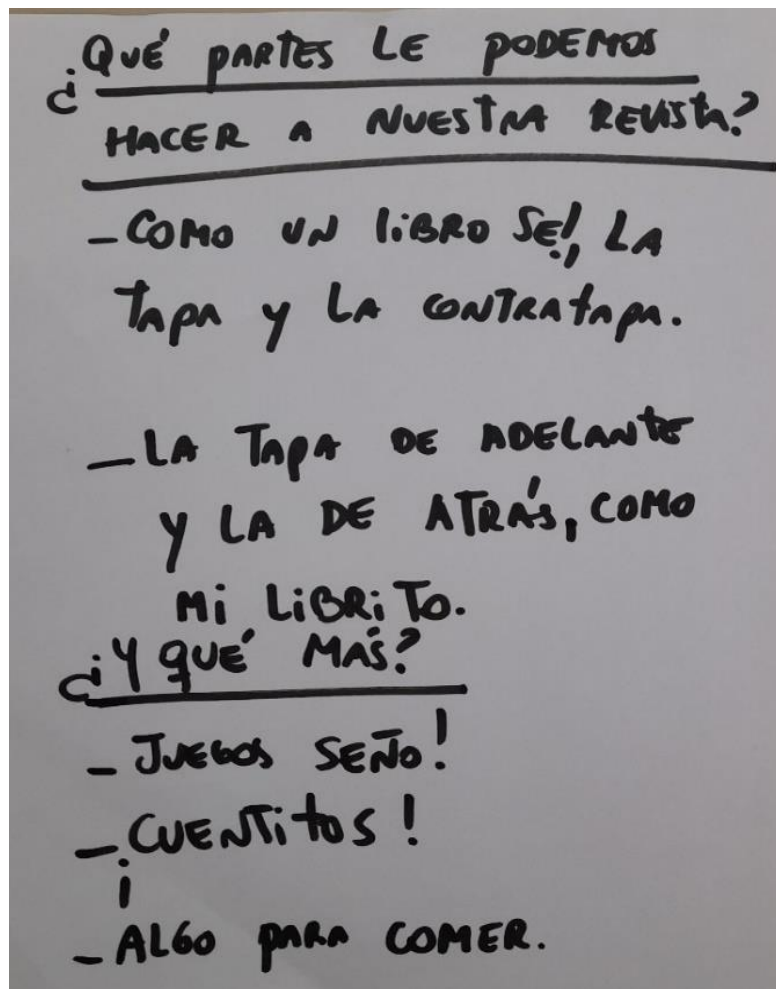 ¿QUÉ PARTES LE PODEMOS
HACER A NUESTRA REVISTA?
- COMO UN LIBRO SE!, LA
TAPA Y LA CONTRATAPA.
- LA TAPA DE ADELANTE
Y LA DE ATRÁS, COMO
MI LIBRITO.
¿Y QUÉ MÁS?
- JUEGOS SEÑO!
- ¡CUENTITOS!
- ALGO PARA COMER.